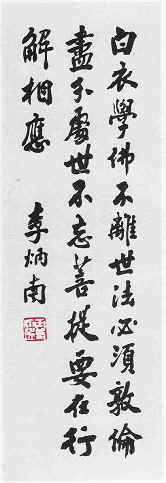 白衣學佛不離世法必須敦倫
盡分處世不忘菩提要在行
解相應
李炳南